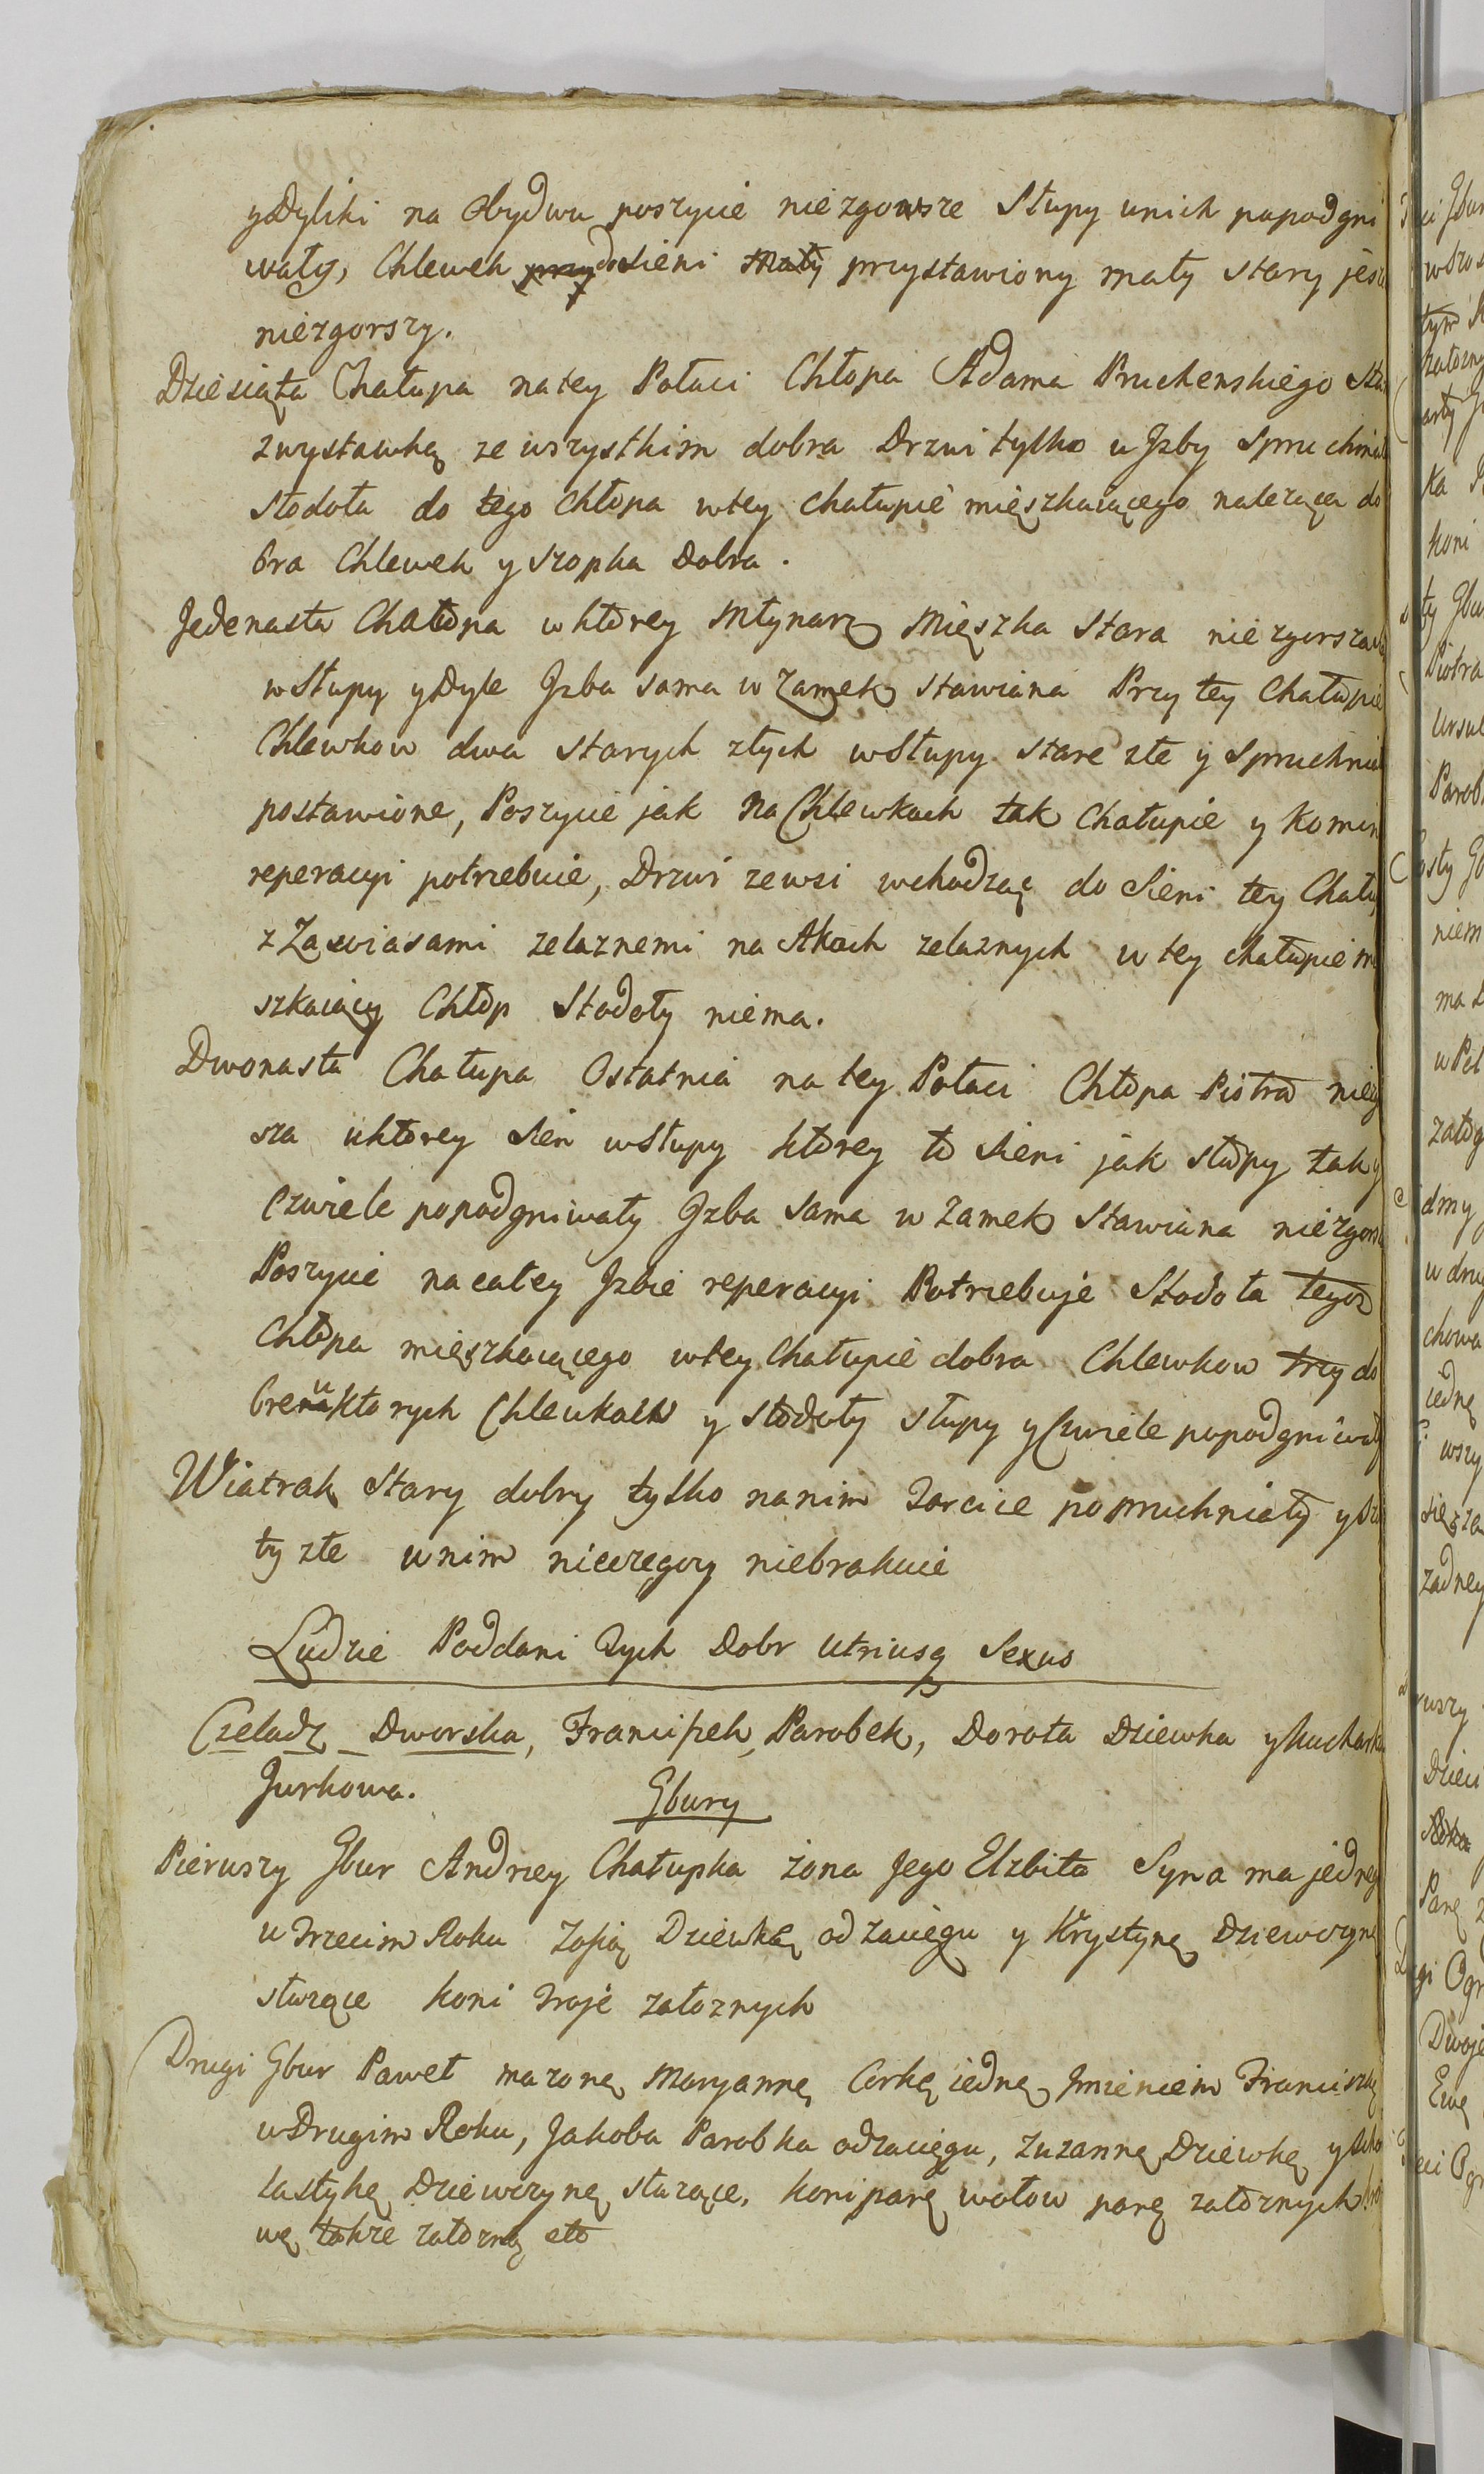 y Dyliki na Obydwu poszycie niezgorsze Słupy unich popodgni
wały, Chlewek przy do Sieni mały przystawiony mały stary jesz
niezgorszy.
Dziesiąta Chałupa na tey Połaci Chłopa Adama Pruchenskiego Sta
z wystawką ze wszystkim dobra Drzwi tylko u Jzby Spruchniał
stodoła do tego Chłopa w tey chałupie mięszkaiącego należąca do
bra Chlewek y szopka Dobra.
Jedenasta Chałupa w ktorey Młynarz Mięszka Stara niezgorsza
w Słupy y Dyle Jzba sama w Zamek stawiana Przy tey Chałupie
Chlewkow dwa starych złych w Słupy stare złe y Spruchniał
postawione, Poszycie jak na Chlewkach tak Chałupie y Komin
reperacyi potrzebuie, Drzwi ze wsi wchodząc do Sieni tey Chału
z Zawiasami zelaznemi na Akach zelaznych w tey chałupie mi
szkaiący Chłop Stodoły niema.
Dwonasta Chałupa Ostatnia na tey Połaci Chłopa Piotra niezg
sza u ktorey Sień w Słupy ktorey to Sieni jak słupy tak y
Czwiele popodgniwały Jzba sama w zamek Stawiana niezgors
Poszycie na całey Jzbie reperacyi Potrzebuje Stodoła tegoz
Chłopa mięszkaiącego w tey Chałupie dobra Chlewkow trzy do
bre u ktorych Chlewkach y stodoły słupy y Czwiele popodgniwały
Wiatrak Stary dobry tylko na nim Tarcice popruchniały y
ty złe w nim niczegoz niebrakuie
Ludzie Poddani Tych Dobr Utriusq Sexus
Czeladz Dworska, Franciszek Parobek, Dorota Dziewka y Kucharka
Jurkowa.
Gbury
Pierwszy Gbur Andrzey Chałupka żona Jego Elzbita Syna ma jedneg
w Trzecim Roku Zofią Dziewkę od zaciągu y Krystynę Dziewczynę
służące Koni Troje załoznych
Drugi Gbur Paweł ma zonę Maryannę Corkę iednę Jmieniem Franciszkę
w Drugim Roku, Jakoba Parobka od zaciągu, Zuzannę Dziewkę y Scho
lastykę Dziewczynę służące, koni parę wołow parę załoznych kro
wę takze załozną etc